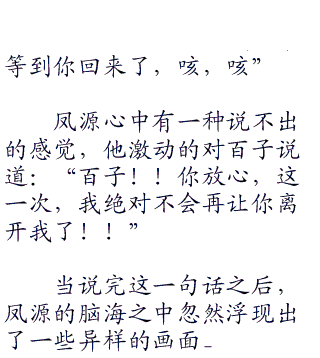 等到你回来了，咳，咳”
凤源心中有一种说不出
的感觉，他激动的对百子说
道：“百子！！你放心，这
一次，我绝对不会再让你离
开我了！！”
当说完这一句话之后，
凤源的脑海之中忽然浮现出
了一些异样的画面_